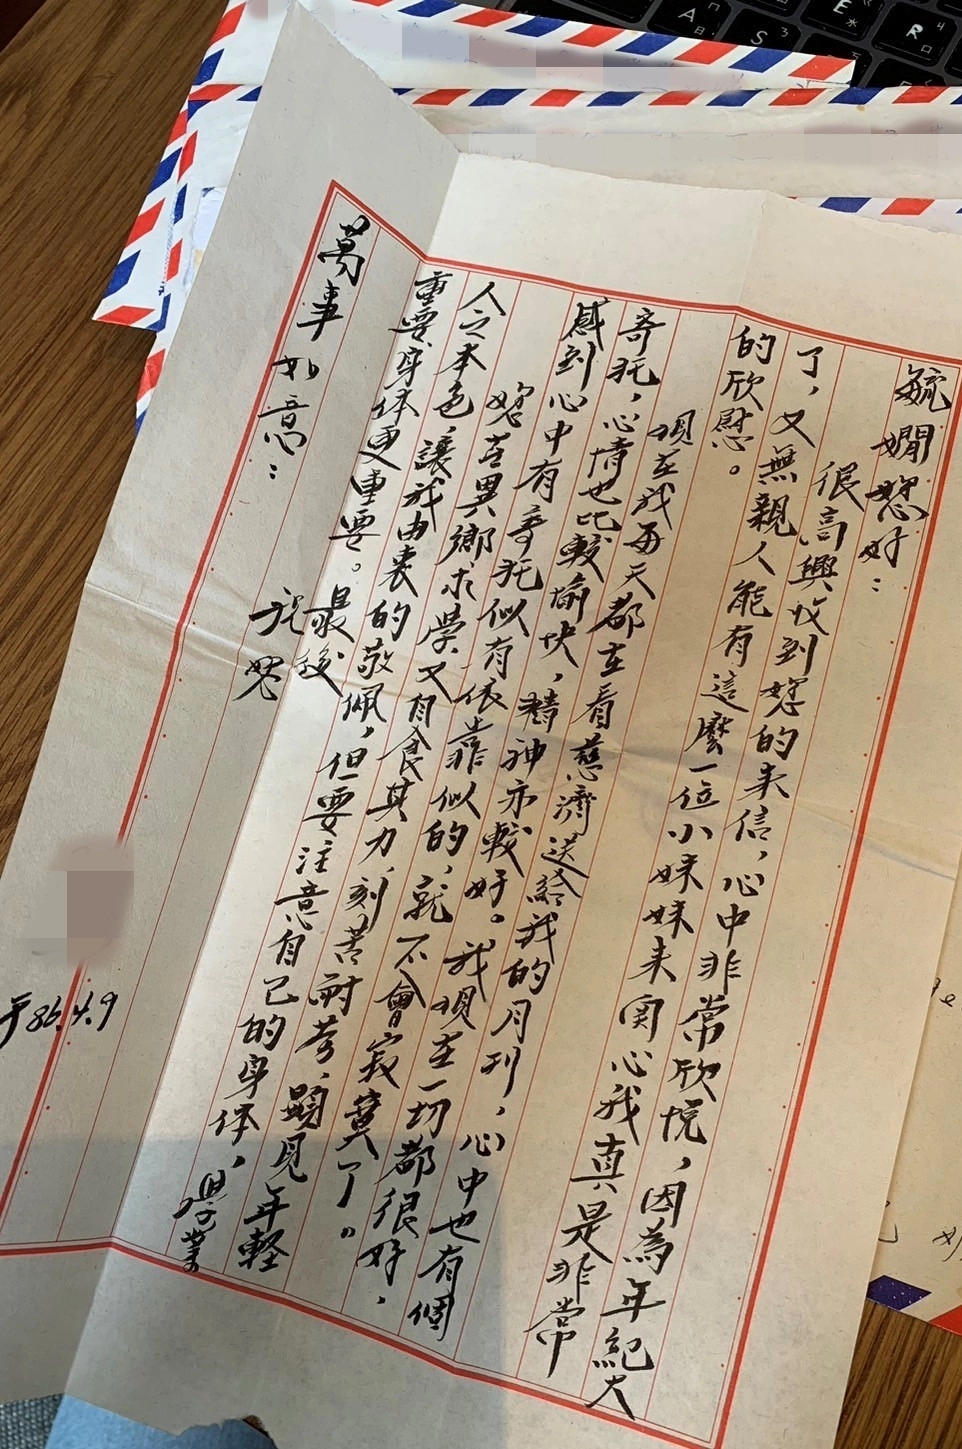 毓嫺您好：
很高興收到您的来信，心中非常欣悦，因為年紀大
了，又無親人能有這麼一位小妹妹来関心我真是非常
的欣慰。
現在我每天都在看慈濟送給我的月刊，心中也有個
寄托，心情也比較愉快，精神亦較好。我現在一切都很好，
感到心中有寄托似有依靠似的，就不會寂寞了。
您在異鄉求學又自食其力，刻苦耐劳，顕見年軽
人之本色，讓我由衷的敬佩，但要注意自己的身体，學業
重要，身体更重要。最後
祝您
萬事如意：
于86.4.9
A
S
E
R